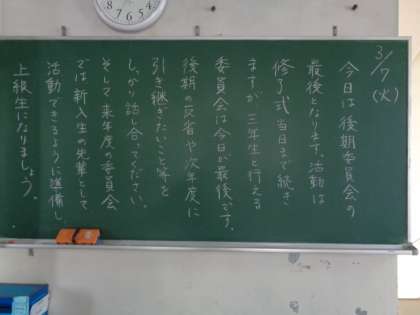 3/7(火)
今日は後期委員会の
最後となります。活動は
修了式当日まで続き
ますが、三年生と行える
委員会は今日が最後です。
後期の反省や次年度に
引き継ぎたいこと等を
しっかり話し合ってください。
そして来年度の委員会
では新入生の先輩として
活動できるように準備し、
上級生になりましょう。